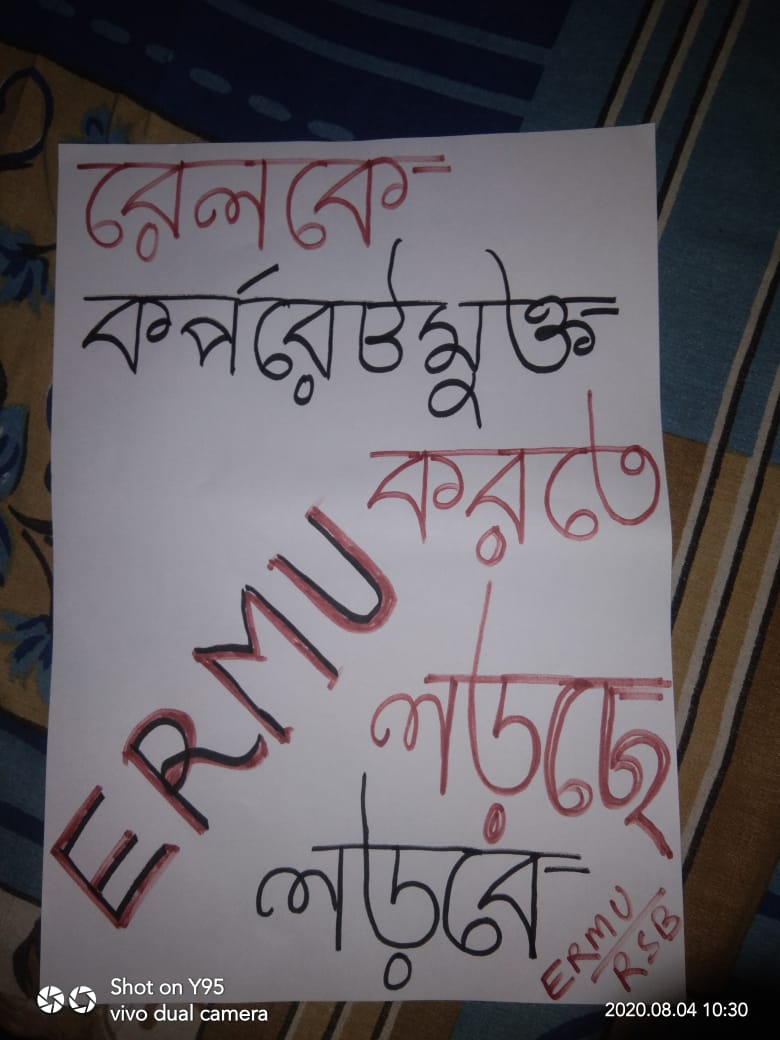 রেলকে
কর্পরেটমুক্ত
করতে
ERMU
লড়ছে
লড়বে
ERMU
RSB
Shot on Y95
vivo dual camera
2020.08.04 10:30